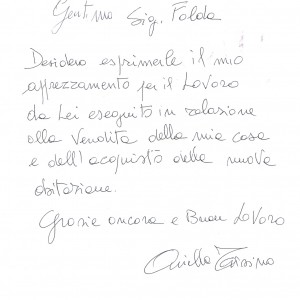 Gent.mo Sig. Folda
Desidero esprimerle il mio
apprezzamento per il Lavoro
da Lei eseguito in relazione
alla Vendita della mia casa
e dell'acquisto della nuova
abitazione.
Grazie ancora e Buon Lavoro